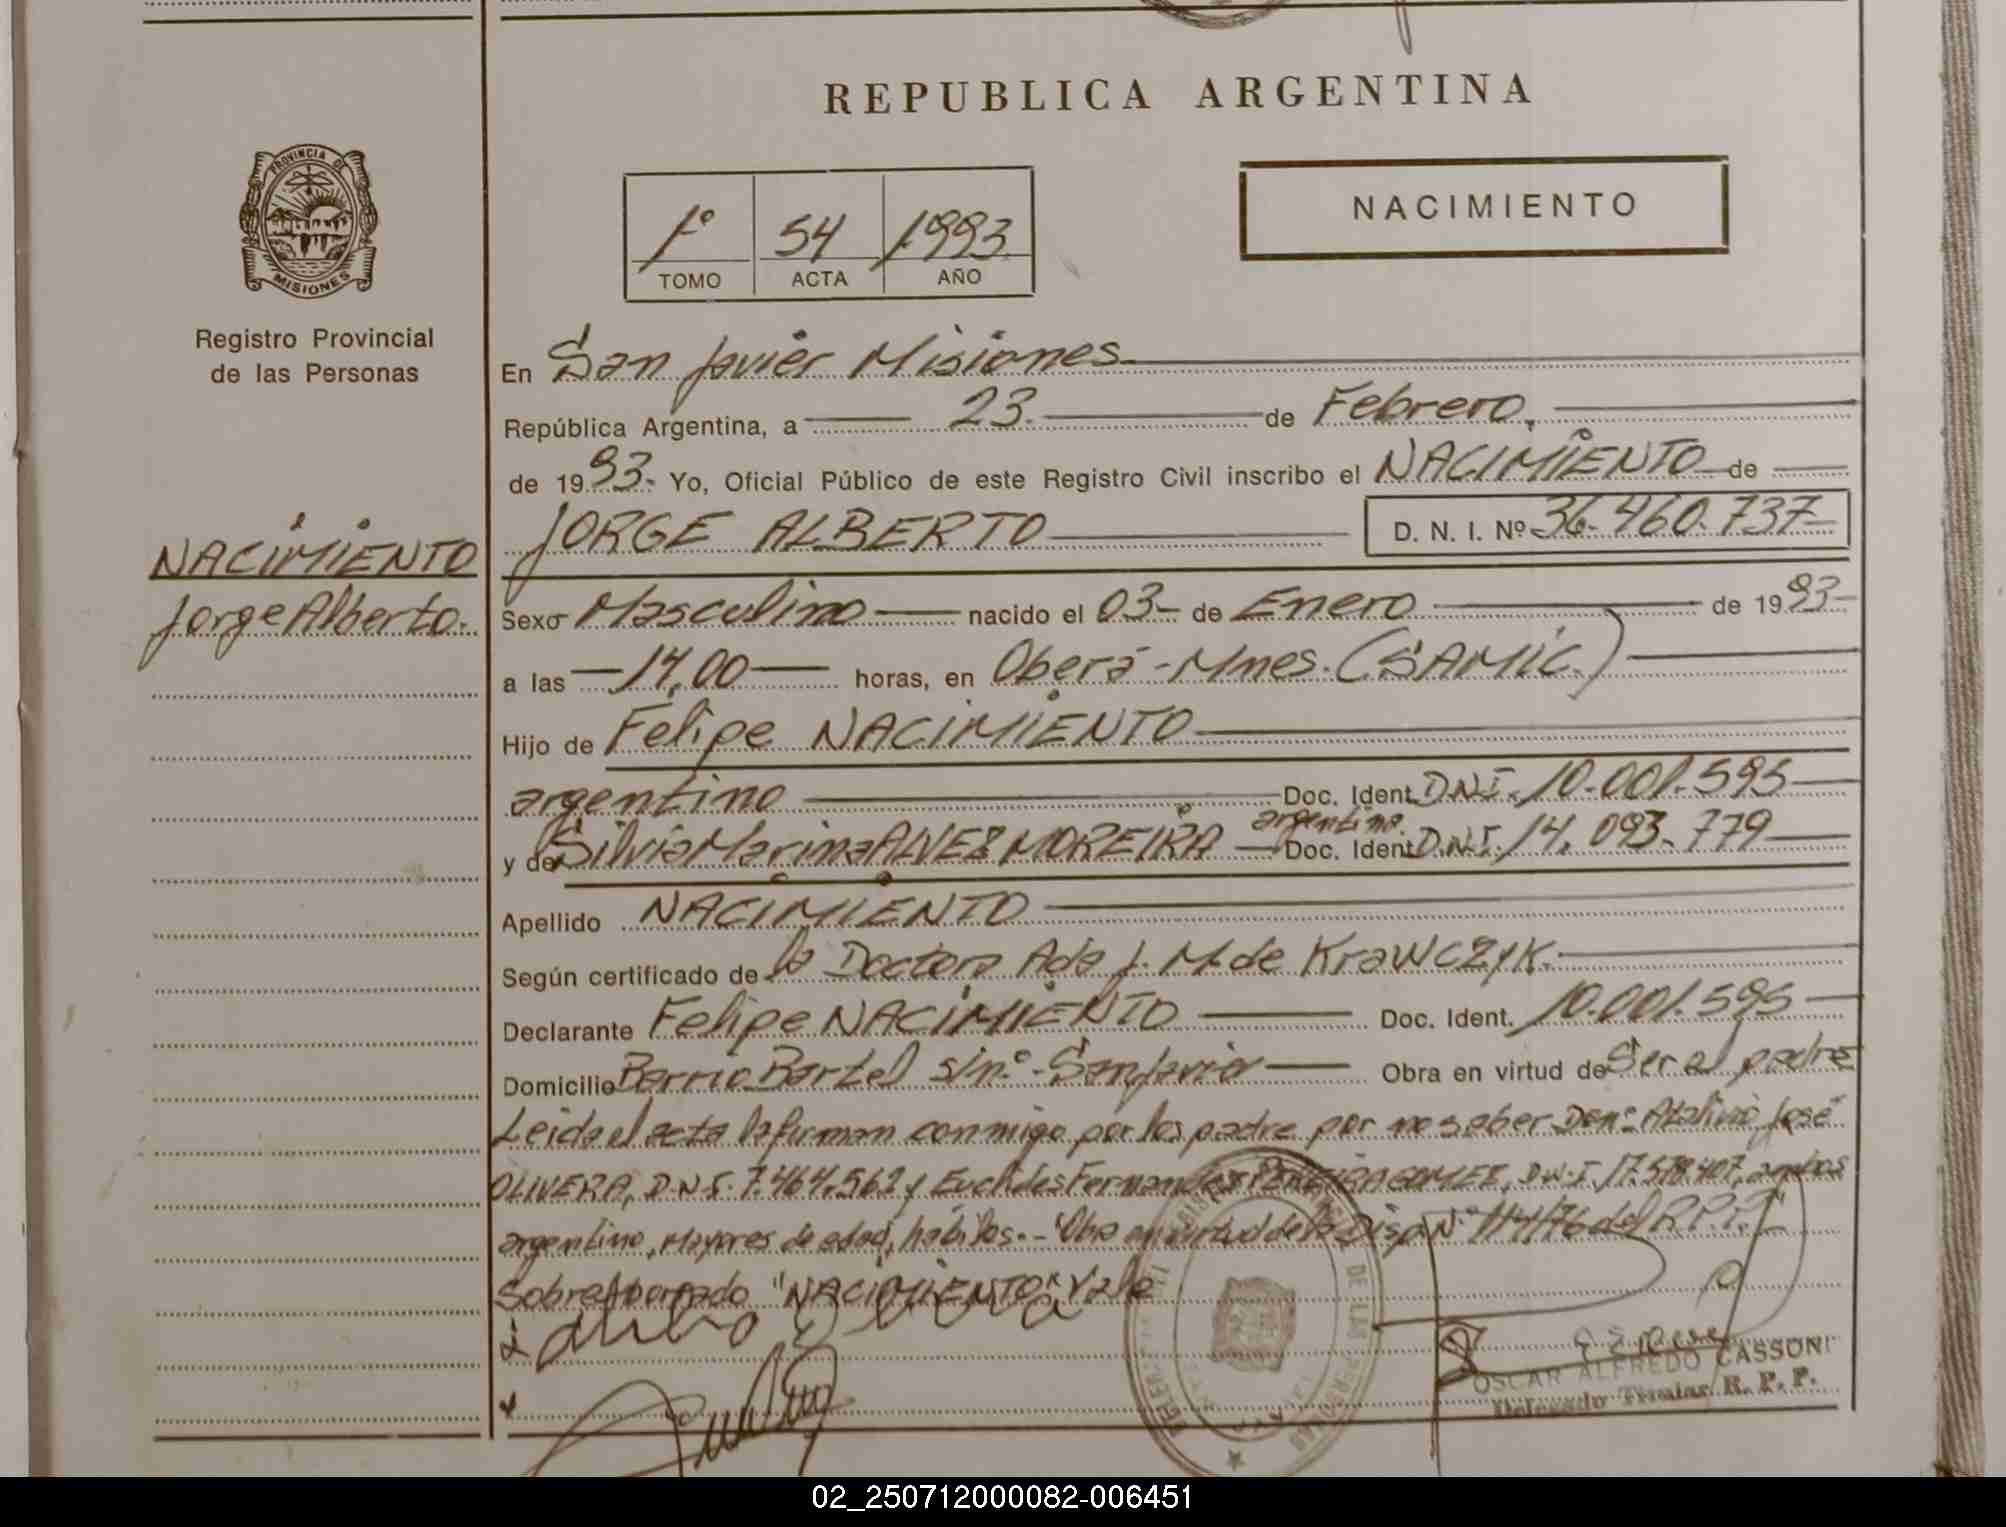 REPUBLICA ARGENTINA
PROVINCIA DE
MISIONES
Registro Provincial
de las Personas
1º 54 1993
TOMO ACTA AÑO
NACIMIENTO
En San Javier Misiones
República Argentina, a 23 de Febrero,
de 1993. Yo, Oficial Público de este Registro Civil inscribo el NACIMIENTO de
JORGE ALBERTO D. N. I. Nº 36.460.737
NACIMIENTO
Jorge Alberto.
Sexo Masculino nacido el 03 de Enero de 1993
a las 14,00 horas, en Oberá - Mnes. (SAMIC.)
Hijo de Felipe NACIMIENTO
argentino Doc. Ident. D.N.I. 10.001.595
argentina.
y de Silvia Marina ALVEZ MOREIRA Doc. Ident. D.N.I. 14.093.779
Apellido NACIMIENTO
Según certificado de la Doctora Ada J. M. de KRAWCZYK.
Declarante Felipe NACIMIENTO Doc. Ident. 10.001.595
Domicilio Barrio Bartel s/nº - San Javier Obra en virtud de Ser el padre
Leida el acta la firman conmigo por los padre por no saber Don José
OLIVERA, D.N.I. 7.464.562 y Euclides Fernandez PEREIRA GOMEZ, D.N.I. 17.578.407, ambos
argentino, mayores de edad, hábiles. - Obra en virtud de la Disp. Nº 114/76 del R.P.P.
Sobreborrado "NACIMIENTO" Vale
DE LAS PERSONAS
OSCAR ALFREDO CASSONI
Delegado Titular R. P. P.
02_250712000082-006451